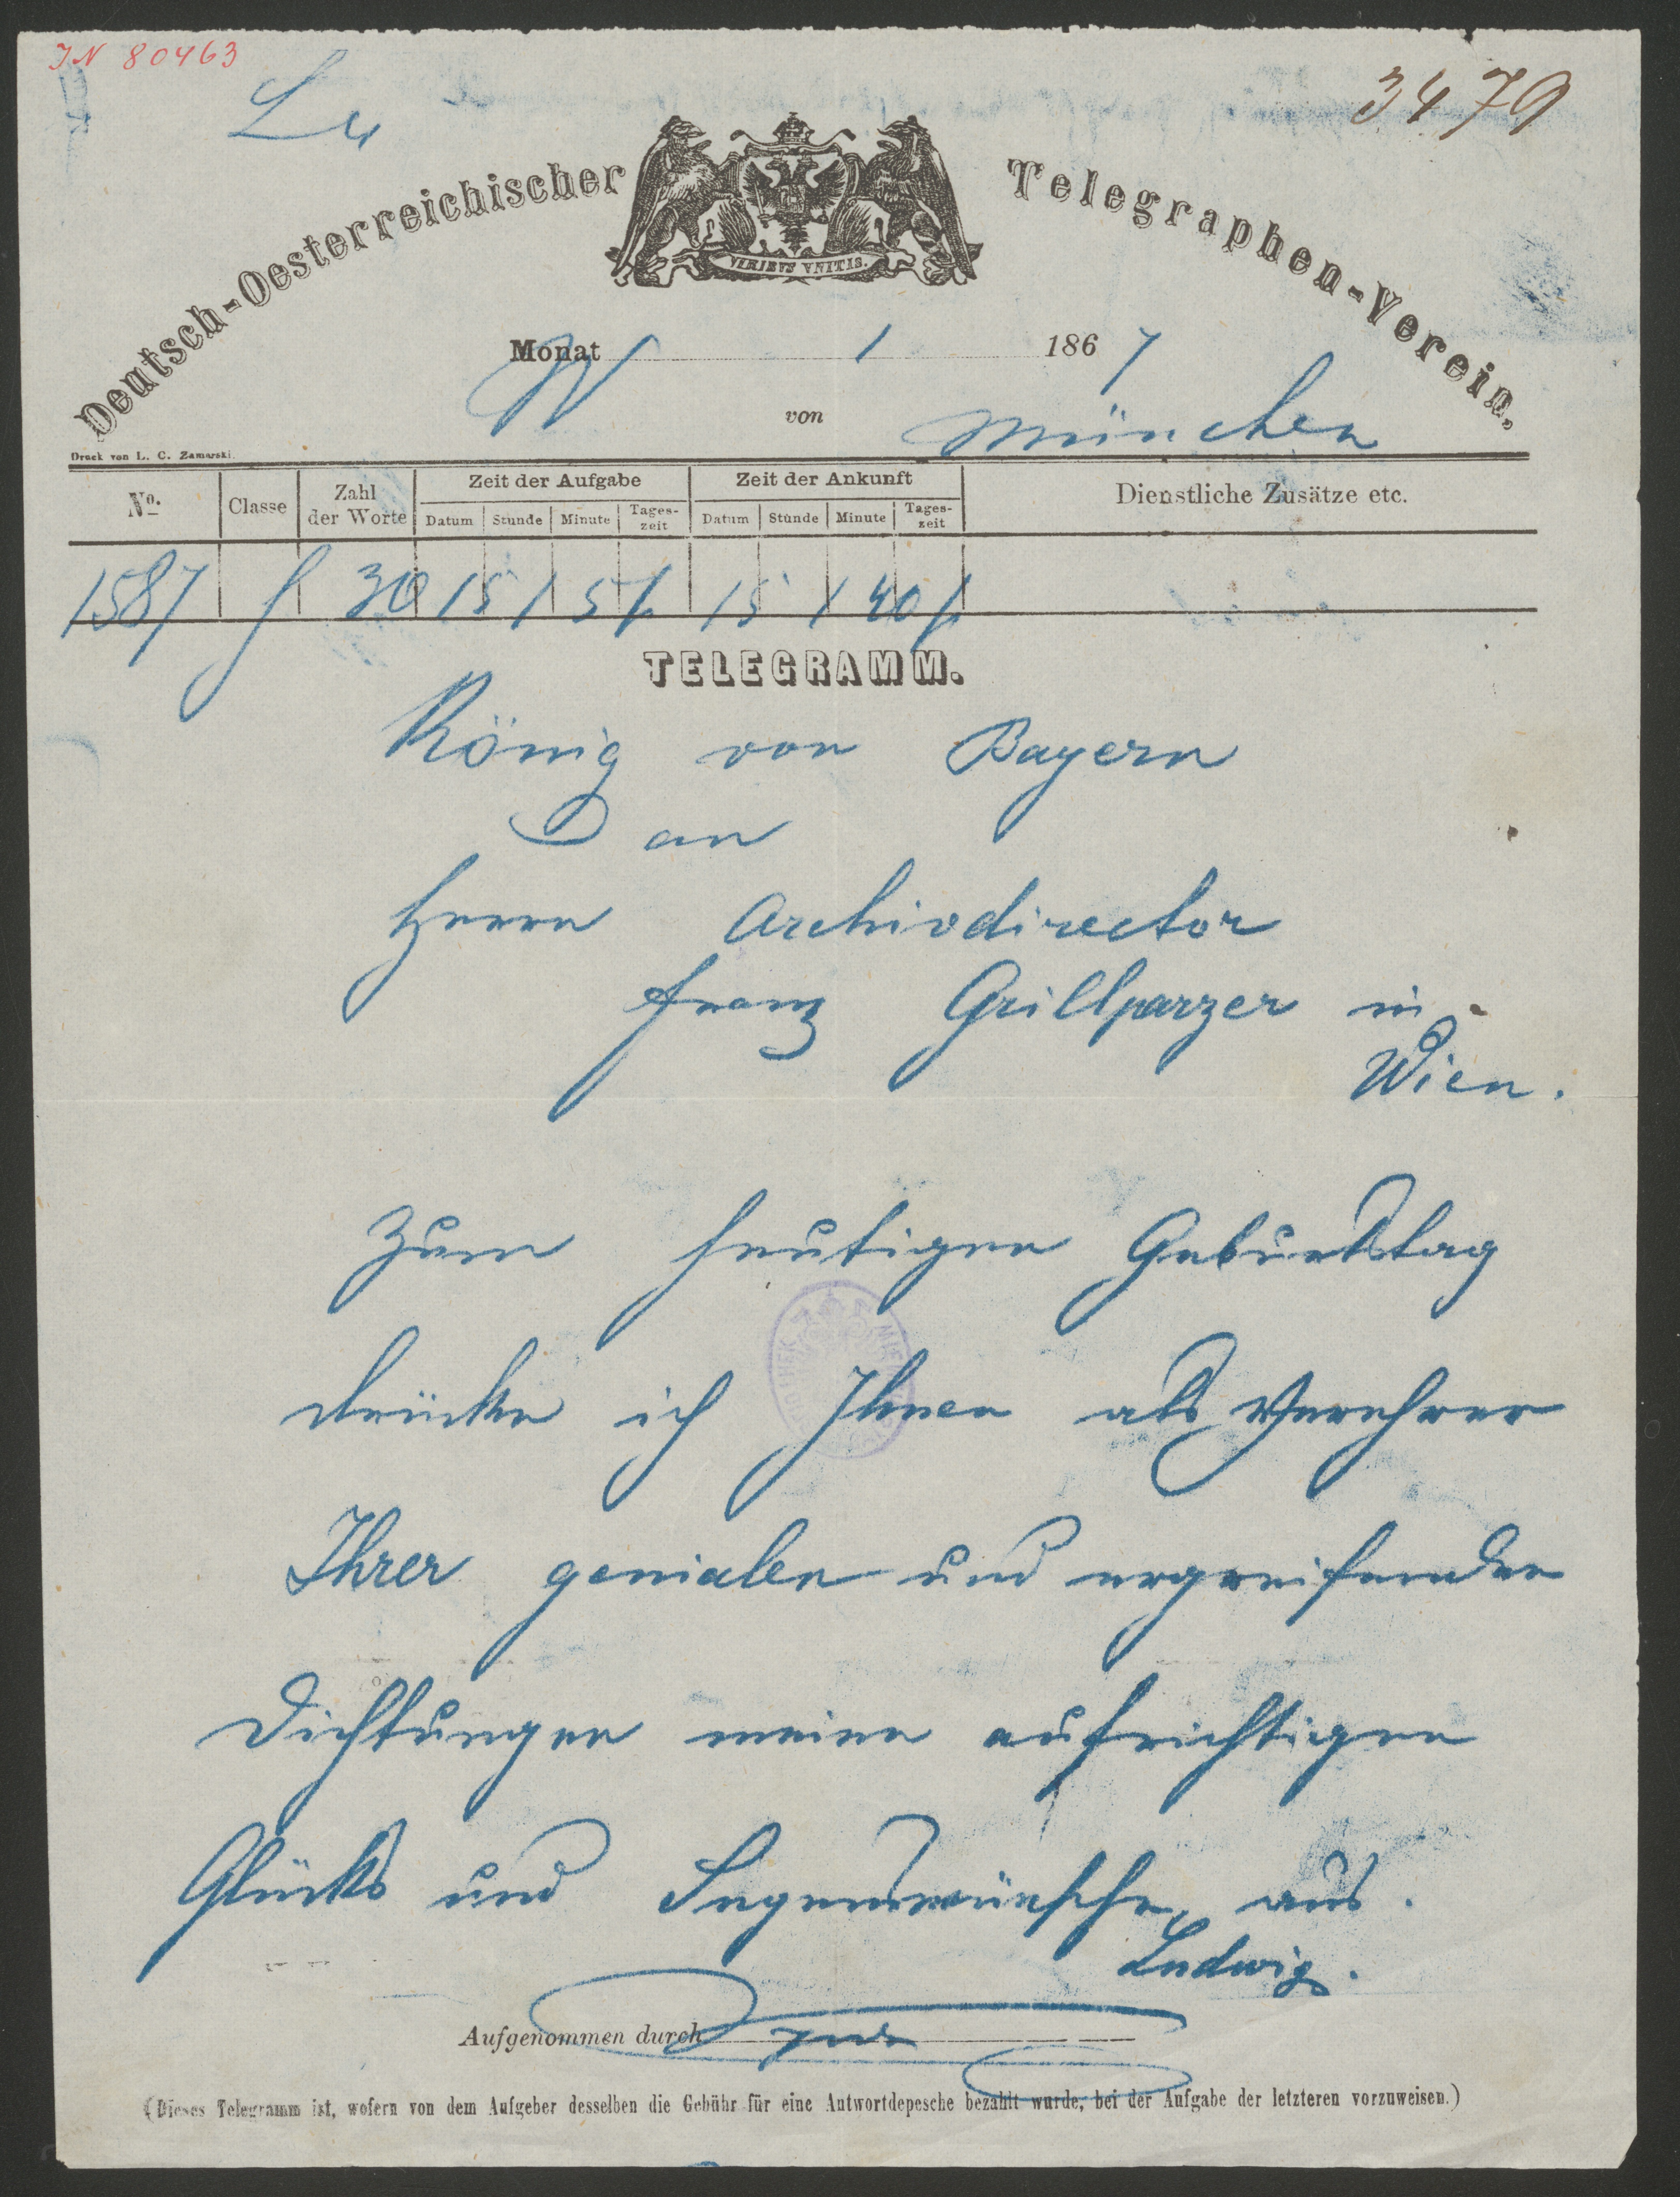 IN 80463
3479
Deutsch-Oesterreichischer Telegraphen-Verein.
VIRIBVS VNITIS.
Monat 1 1867
von München
Druck von L. C. Zamarski.
No. Classe Zahl der Worte Zeit der Aufgabe Zeit der Ankunft Dienstliche Zusätze etc.
Datum Stunde Minute Tageszeit Datum Stunde Minute Tageszeit
1587 30 15 1 5 15 1 40
TELEGRAMM.
König von Bayern
an
Herrn Archivdirector
Franz Grillparzer in
Wien.
Zum heutigen Geburtstag
drücke ich Ihnen als Verehrer
Ihrer genialen und ergreifenden
Dichtungen meine aufrichtigen
Glücks und Segenswünsche aus.
Ludwig.
Aufgenommen durch
(Dieses Telegramm ist, wofern von dem Aufgeber desselben die Gebühr für eine Antwortdepesche bezahlt wurde, bei der Aufgabe der letzteren vorzuweisen.)